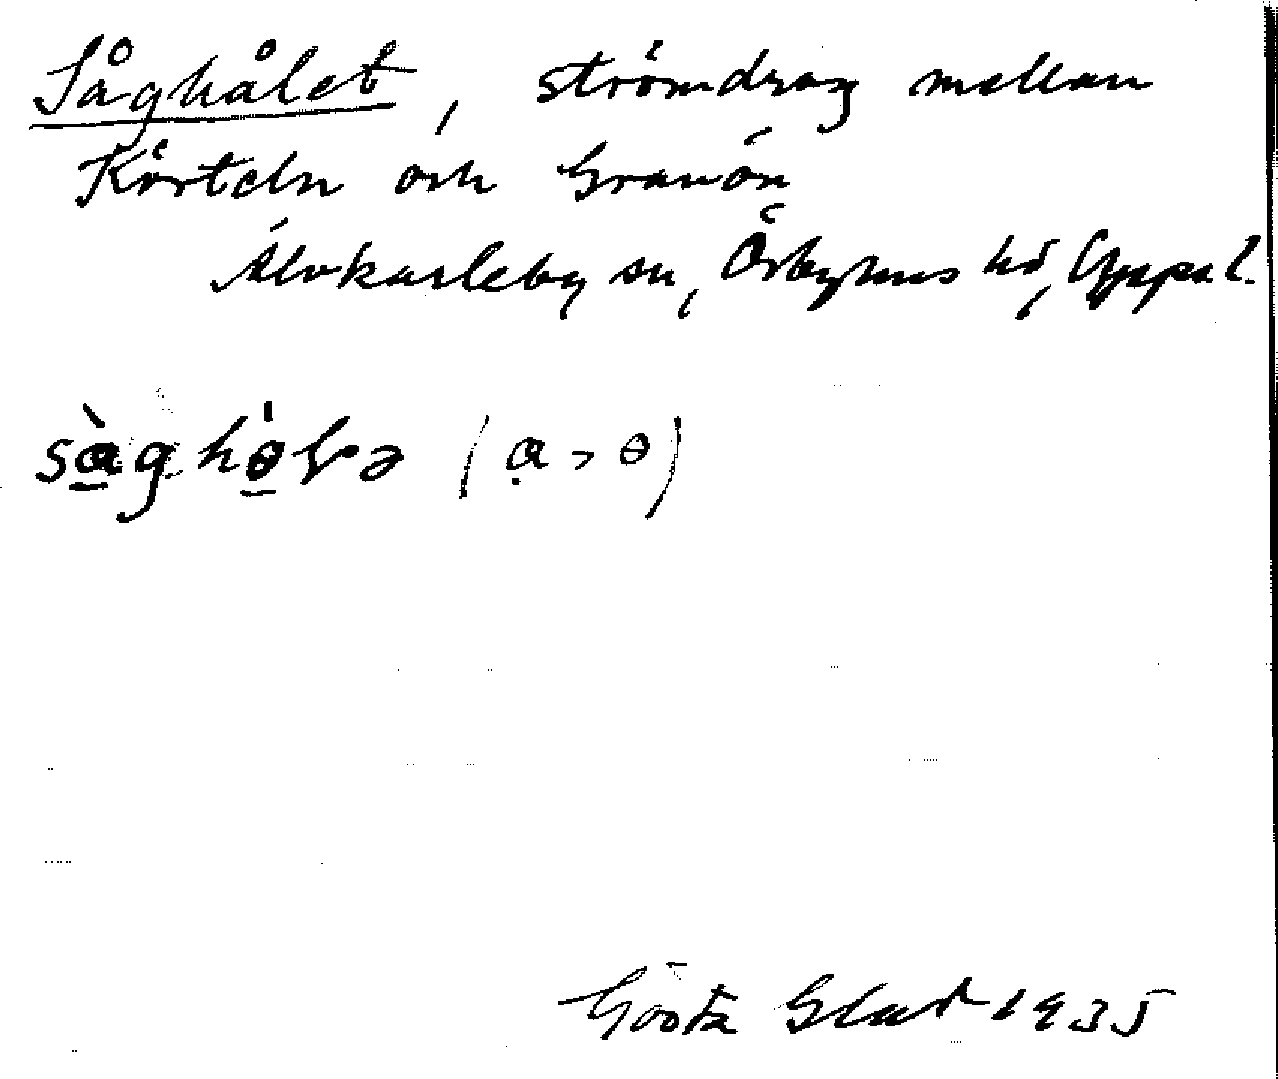 Såghålet, strömdrag mellan
Körteln och Granön
Älvkarleby sn, Örbyhus hd, Uppsal.
sàghɵlə (ɑ > ɵ)
Gösta Glad 1935